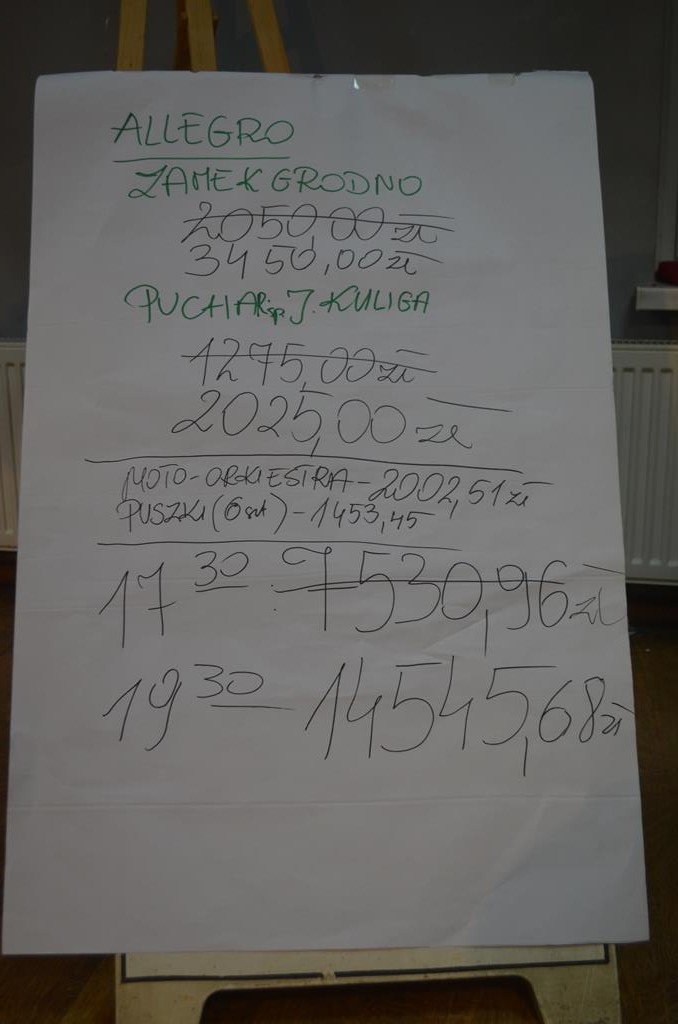 ALLEGRO
ZAMEK GRODNO
2050,00 zł
3450,00 zł
PUCHAR śp. J. KULIGA
1275,00 zł
2025,00 zł
MOTO-ORKIESTRA - 2002,51 zł
PUSZKI (6 szt) - 1453,45
17 30 : 7530,96 zł
19 30 - 14545,68 zł